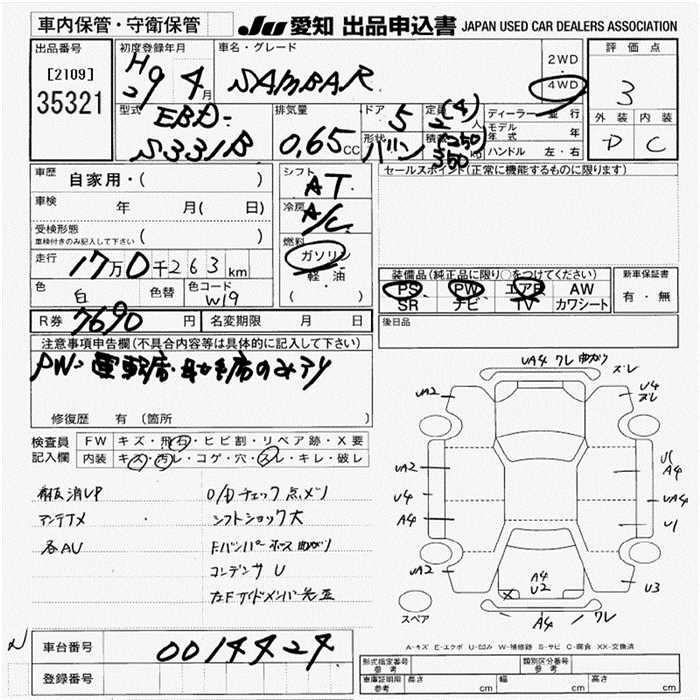 車内保管・守衛保管
JU 愛知 出品申込書 JAPAN USED CAR DEALERS ASSOCIATION
出品番号
[2109]
35321
初度登録年月
H29 4月
車名・グレード
SAMBAR
2WD
・
4WD
評価点
3
外装 内装
D C
型式
EBD-
S331B
排気量
0.65CC
ドア 5
形状 バン
定員 2(4)人
積載 (250) 350 kg
ディーラー・並行
モデル年式 年
ハンドル 左・右
車歴 自家用・( )
車検 年 月( 日)
受検形態
車検付きのみ記入して下さい ( )
走行 17万0千263km
色 白 色替 色コード W19
R券 7690円 名変期限 月 日
シフト AT
冷房 A/C
燃料
ガソリン
軽・油
( )
セールスポイント(正常に機能するものに限ります)
装備品(純正品に限り○をつけてください)
PS PW エアB AW
SR ナビ TV カワシート
新車保証書
有・無
後日品
注意事項申告欄(不具合内容等は具体的に記入して下さい)
PW・運転席・助手席のみアリ
修復歴 有(箇所 )
検査員記入欄
FW キズ・飛石・ヒビ割・リペア跡・X要
内装 キズ・汚レ・コゲ・穴・スレ・キレ・破レ
O/Dチェック点メツ
アンテナメ シフトショック大
各AU Fバンパーホース曲がり
コンデンサU
UA4 ワレ 曲がり
ズレ
UA2
U4
ズレ
UA2
U4
A4
UA2
A4
UA4
U1
U3
A4
U2
X
A4 ワレ
スペア
A-キズ E-エクボ U-凹み W-補修跡 S-サビ C-腐食 XX-交換済
車台番号 0014424
登録番号
型式指定番号
参考
類別区分番号
参考
車庫証明
参考
長さ cm 幅 cm 高さ cm